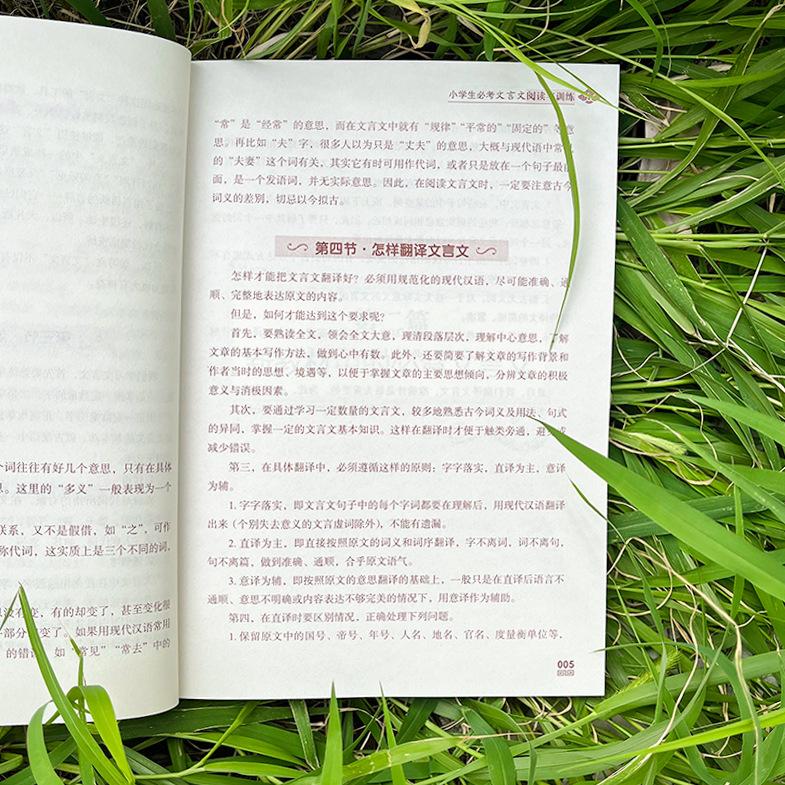 个词往往有好几个意思，只有在具体
思。这里的“多义”一般表现为一个
联系，又不是假借，如“之”，可作
称代词，这实质上是三个不同的词，
有变，有的却变了，甚至变化很
部分变了。如果用现代汉语常用
的错误，如“常见”“常去”中的
小学生必考文言文阅读与训练
“常”是“经常”的意思，而在文言文中就有“规律”“平常的”“固定的”等意
思。再比如“夫”字，很多人以为只是“丈夫”的意思，大概与现代语中常见
的“夫妻”这个词有关，其实它有时可用作代词，或者只是放在一个句子最前
面，是一个发语词，并无实际意思。因此，在阅读文言文时，一定要注意古今
词义的差别，切忌以今拟古。
第四节·怎样翻译文言文
怎样才能把文言文翻译好？必须用规范化的现代汉语，尽可能准确、通
顺、完整地表达原文的内容。
但是，如何才能达到这个要求呢？
首先，要熟读全文，领会全文大意，理清段落层次，理解中心意思，了解
文章的基本写作方法，做到心中有数。此外，还要简要了解文章的写作背景和
作者当时的思想、境遇等，以便于掌握文章的主要思想倾向，分辨文章的积极
意义与消极因素。
其次，要通过学习一定数量的文言文，较多地熟悉古今词义及用法、句式
的异同，掌握一定的文言文基本知识。这样在翻译时才便于触类旁通，避免或
减少错误。
第三，在具体翻译中，必须遵循这样的原则：字字落实，直译为主，意译
为辅。
1. 字字落实，即文言文句子中的每个字词都要在理解后，用现代汉语翻译
出来（个别失去意义的文言虚词除外），不能有遗漏。
2. 直译为主，即直接按照原文的词义和词序翻译，字不离词，词不离句，
句不离篇，做到准确、通顺，合乎原文语气。
3. 意译为辅，即按照原文的意思翻译的基础上，一般只是在直译后语言不
通顺、意思不明确或内容表达不够完美的情况下，用意译作为辅助。
第四，在直译时要区别情况，正确处理下列问题。
1. 保留原文中的国号、帝号、年号、人名、地名、官名、度量衡单位等，
005